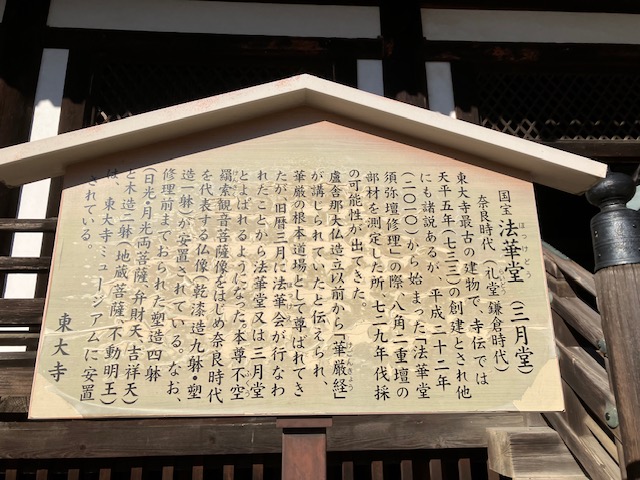 国宝 法華堂（三月堂）
ほっけどう
奈良時代（礼堂 鎌倉時代）
東大寺最古の建物で、寺伝では
天平五年（七三三）の創建とされ他
にも諸説あるが、平成二十二年
（二〇一〇）から始まった「法華堂
須弥壇修理」の際、八角二重壇の
部材を測定した所、七二九年伐採
の可能性が出てきた。
盧舎那大仏造立以前から「華厳経」
が講じられていたと伝えられ、
華厳の根本道場として尊ばれてき
たが旧暦三月に法華会が行なわ
れたことから法華堂又は三月堂
とよばれるようになった。本尊不空
羂索観音菩薩像をはじめ奈良時代
を代表する仏像（乾漆造九躰・塑
造一躰）が安置されている。なお、
修理前までおられた塑造四躰
（日光・月光両菩薩、弁財天、吉祥天）
と木造二躰（地蔵菩薩、不動明王）
は、東大寺ミュージアムに安置
されている。
東大寺